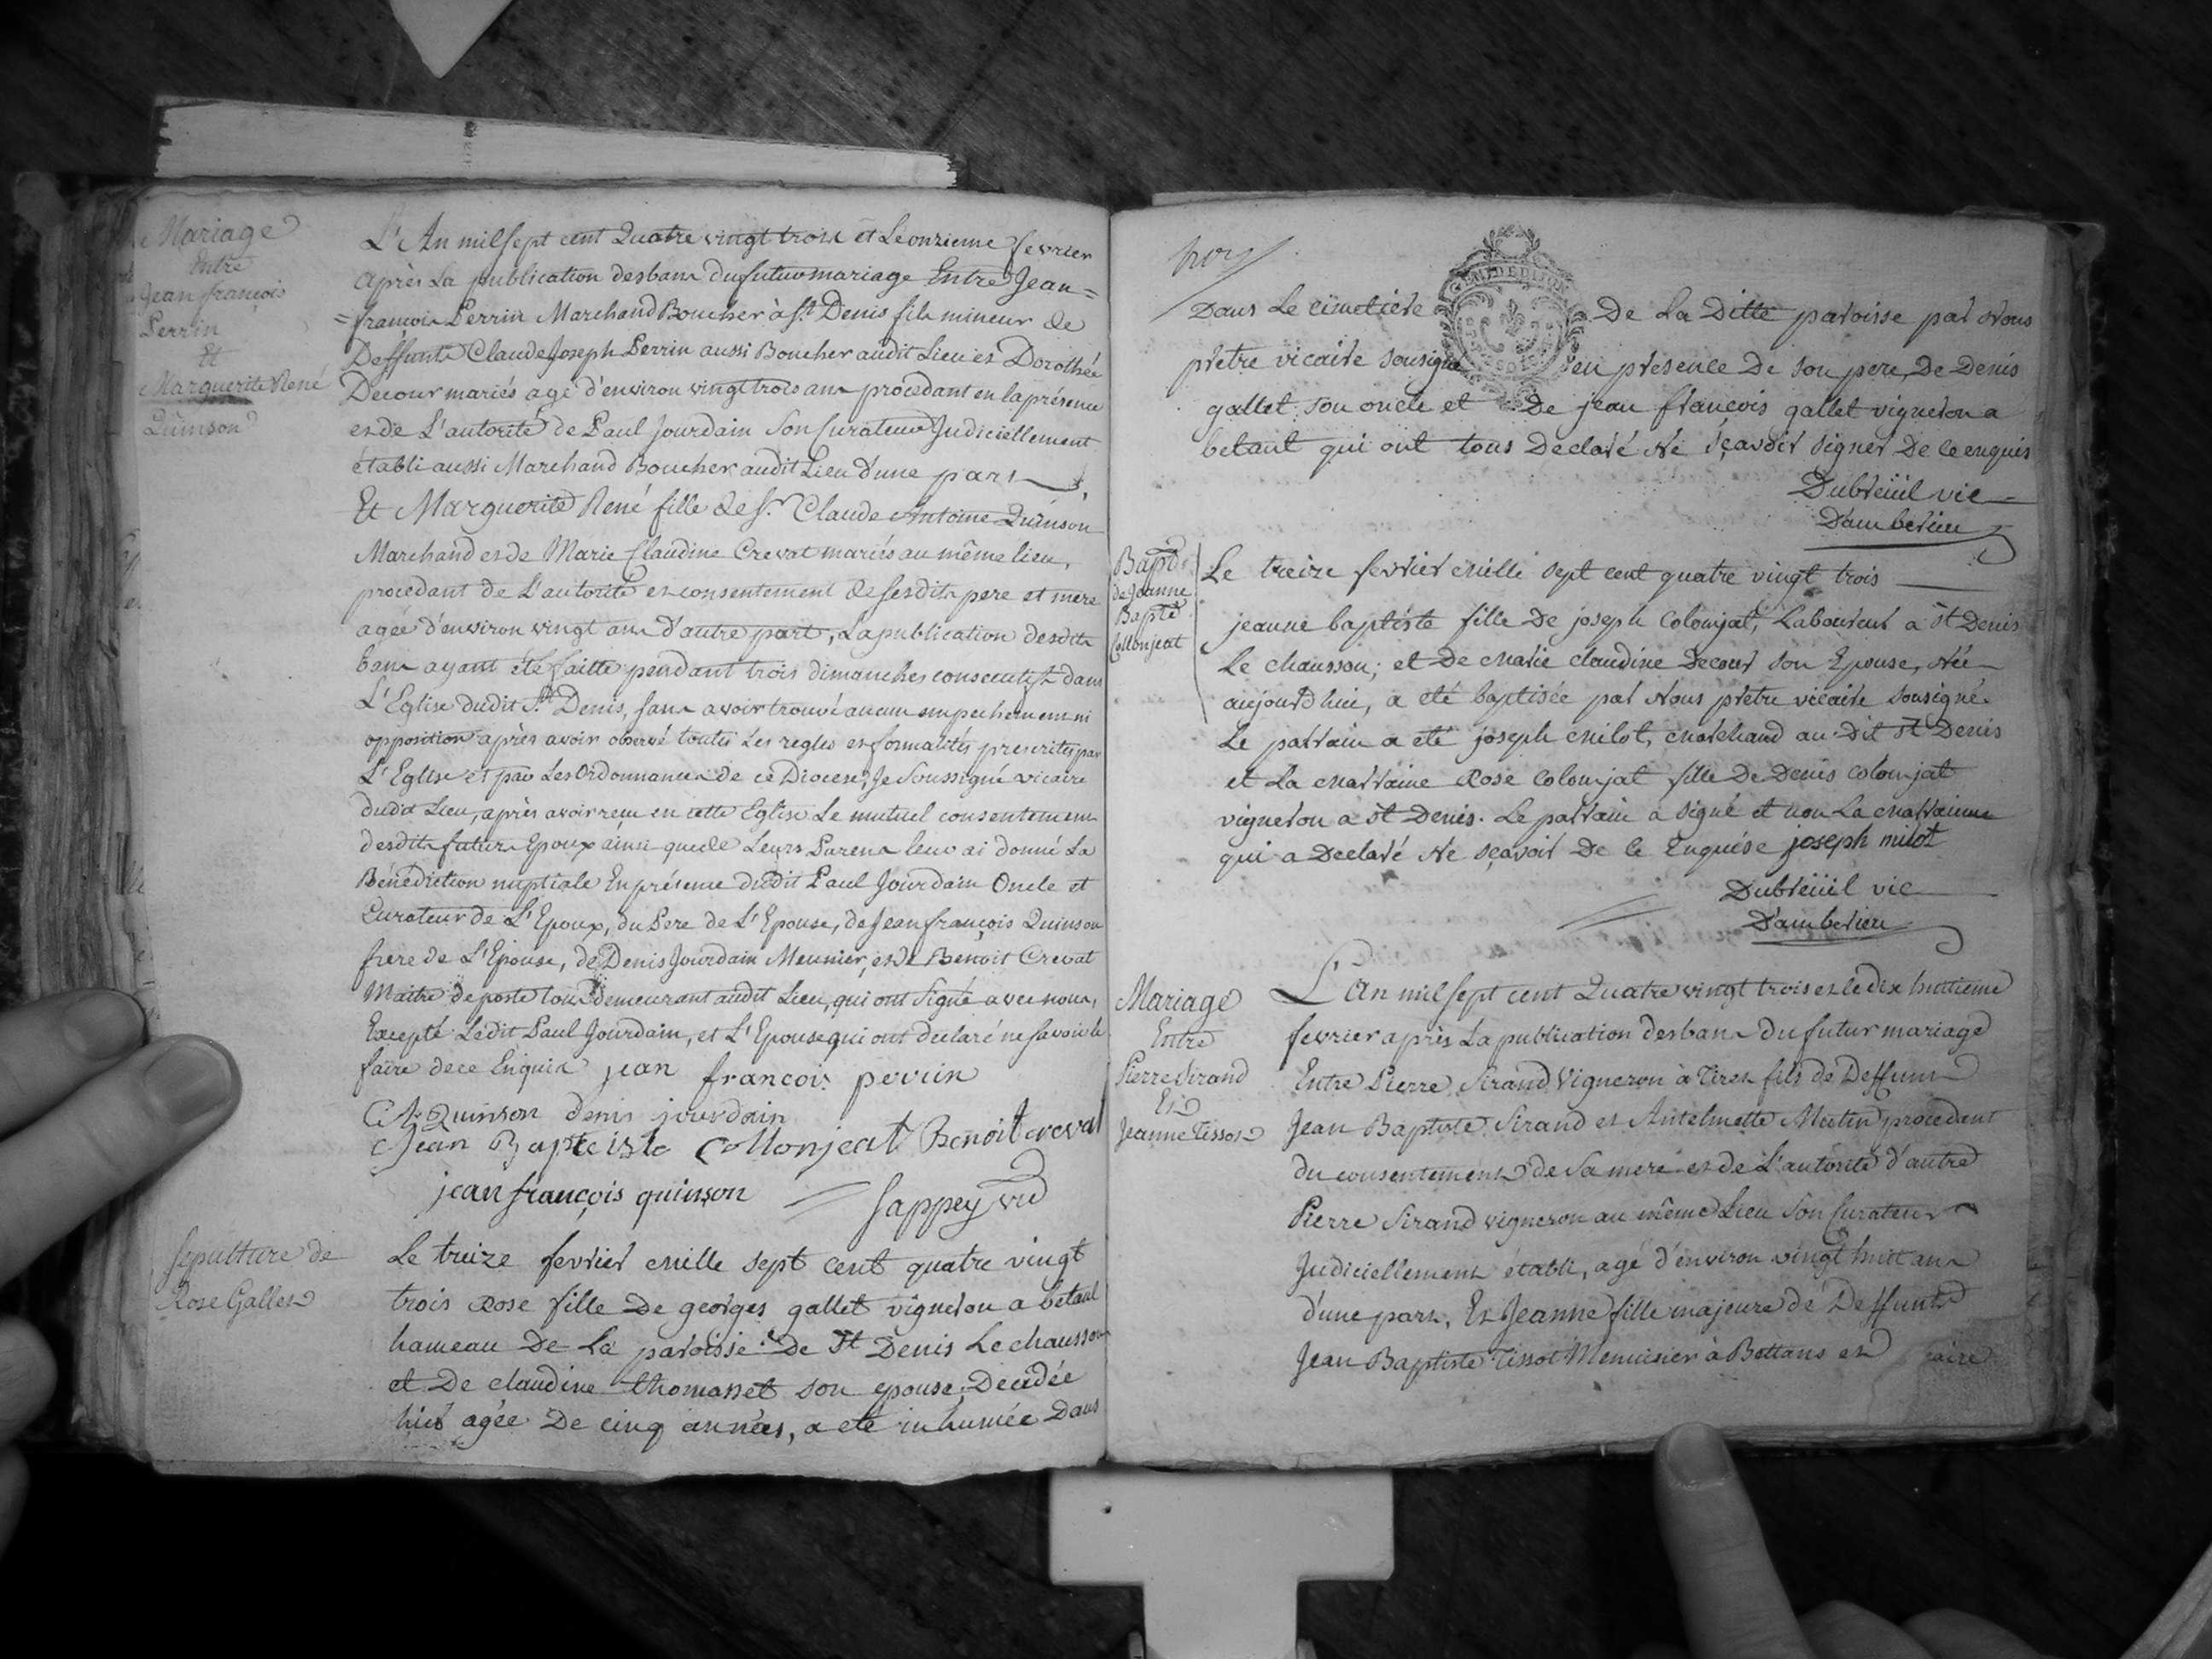 Mariage
Entre
Jean françois
Perrin
Et
Marguerite René
Quinson
L'An mil sept cent Quatre vingt trois et Le onzieme fevrier
après La publication des bans du futur mariage Entre Jean=
=françois Perrin Marchand Boucher à St. Denis fils mineur de
Deffunts Claude Joseph Perrin aussi Boucher audit Lieu et Dorothée
Decour mariés agé d'environ vingt trois ans procedant en la présence
et de L'autorité de Paul Jourdain Son Curateur Judiciellement
établi aussi Marchand Boucher audit Lieu d'une part
Et Marguerite René fille de Sr. Claude Antoine Quinson
Marchand et de Marie Claudine Crevat mariés au même lieu,
procedant de L'autorité et consentement de sesdits pere et mere
agée d'environ vingt ans d'autre part, La publication desdits
bans ayant été faitte pendant trois dimanches consecutifs dans
L'Eglise dudit St. Denis, sans avoir trouvé aucun empechement ni
opposition après avoir observé toutes Les regles et formalités prescrites par
L'Eglise et par Les Ordonnances de ce Diocese, Je Soussigné vicaire
dudit Lieu, après avoir reçu en cette Eglise Le mutuel consentement
desdits futurs Epoux ainsi que de Leurs Parens leur ai donné La
Bénédiction nuptiale En présence dudit Paul Jourdain Oncle et
Curateur de L'Epoux, du Pere de L'Epouse, de Jean françois Quinson
frere de L'Epouse, de Denis Jourdain Meunier, et de Benoit Crevat
Maitre de poste tous demeurant audit Lieu, qui ont Signé avec nous,
Excepté Ledit Paul Jourdain, et L'Epouse qui ont declaré ne savoir le
faire de ce Enquis jean francois perrin
Quinson denis jourdain
Jean Baptciste Collonjeat Benoit crevat
jean françois quinson Sappey vic
Sepulture de
Rose Gallet
Le treize fevrier mille sept cent quatre vingt
trois Rose fille De georges gallet vigneron a betant
hameau De La paroisse De St Denis Le chausson
et De claudine thomasset son epouse, Decedée
hier agée De cinq années, a eté inhumée Dans
Dans Le cimetiere De La Ditte paroisse par Nous
prêtre vicaire sousigné en presence De son pere, De Denis
gallet son oncle et De jean françois gallet vigneron a
betant qui ont tous Declaré Ne sçavoir signer De ce enquis
Dubreüil vic
D'amberieu
Bapt.
de Jeanne
Bapte
Collonjeat
Le treize fevrier mille sept cent quatre vingt trois
jeanne baptiste fille De joseph Colonjat, Laboureur a St Denis
Le chausson; et De Marie claudine Decour son Epouse, Née
aujourd'hui, a été baptisée par Nous prêtre vicaire sousigné.
Le parrain a eté joseph Milot, Marchand au-dit St Denis
et La Marraine Rose Colonjat fille De Denis Colonjat
vigneron a St Denis. Le parrain a signé et non La Marraine
qui a Declaré Ne sçavoir De ce Enquise joseph milot
Dubreüil vic
D'amberieu
Mariage
Entre
Pierre Sirand
Et
Jeanne Tissot
L'An mil sept cent Quatre vingt trois et le dix huitieme
fevrier après La publication des bans du futur mariage
Entre Pierre Sirand Vigneron à Tiret fils de Deffunt
Jean Baptiste Sirand et Antelmette Mutin procedant
du consentement de Sa mere et de L'autorité d'autre
Pierre Sirand vigneron au même Lieu Son Curateur
Judiciellement établi, agé d'environ vingt huit ans
d'une part, Et Jeanne fille majeure de Deffunts
Jean Baptiste Tissot Menuisier à Bettans et